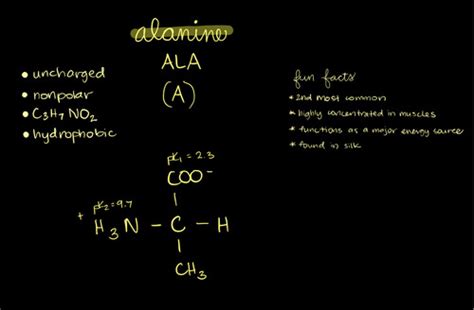 alanine
ALA
(A)
• uncharged
• nonpolar
• C3H7NO2
• hydrophobic
fun facts
* 2nd most common
* highly concentrated in muscles
* functions as a major energy source
* found in silk
pK1 = 2.3
COO-
pK2 = 9.7
+
H3N - C - H
CH3